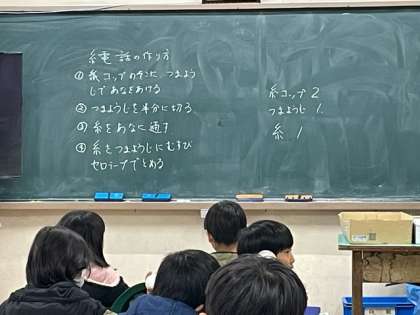 糸電話の作り方
① 紙コップのそこに つまよう
じであなをあける
② つまようじを半分に切る
③ 糸をあなに通す
④ 糸をつまようじにむすび
セロテープでとめる
糸コップ 2
つまようじ 1
糸 1